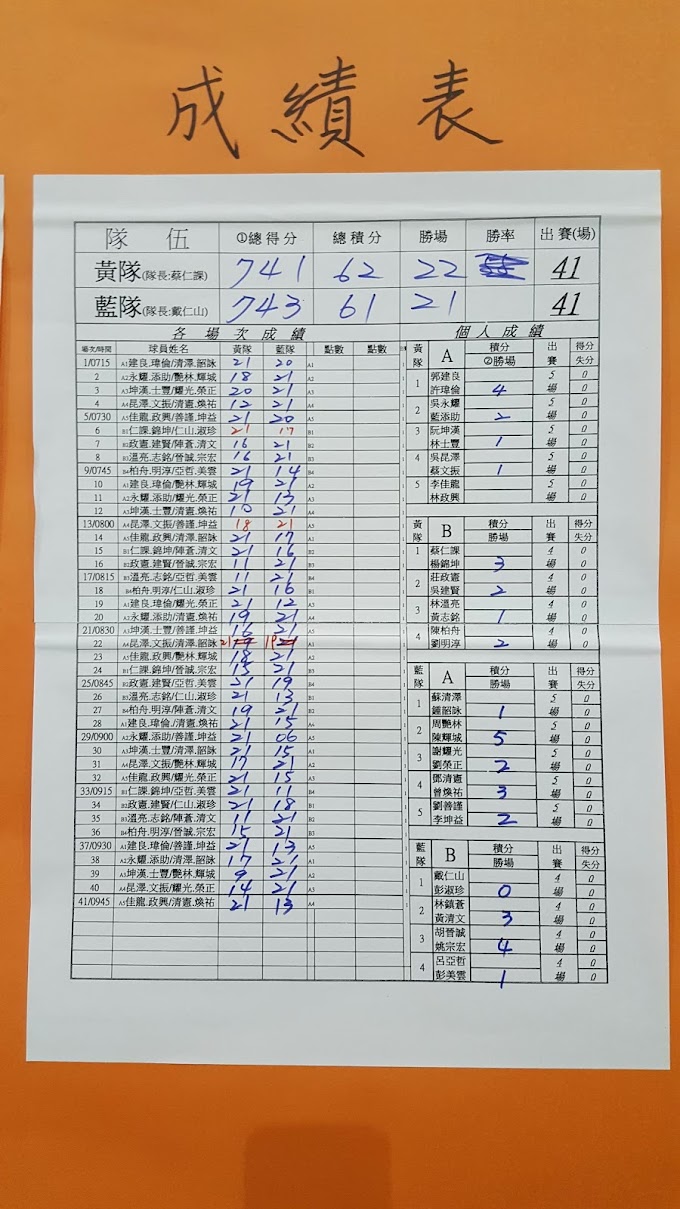 成績表
隊伍 ①總得分 總積分 勝場 勝率 出賽(場)
黃隊(隊長:蔡仁課) 741 62 22 41
藍隊(隊長:戴仁山) 743 61 21 41
各場次成績 個人成績
場次/時間 球員姓名 黃隊 藍隊 點數 點數
1/0715 A1建良.瑋倫/清澤.韶詠 21 20 A1
2 A2永耀.添助/艷林.輝城 18 21 A2
3 A3坤漢.士豐/耀光.榮正 20 21 A3
4 A4昆澤.文振/清憲.煥祐 12 21 A4
5/0730 A5佳龍.政興/善謹.坤益 21 20 A5
6 B1仁課.錦坤/仁山.淑珍 21 17 B1
7 B2政憲.建賢/陣蒼.清文 16 21 B2
8 B3溫亮.志銘/晉誠.宗宏 16 21 B3
9/0745 B4柏舟.明淳/亞哲.美雲 21 14 B4
10 A1建良.瑋倫/艷林.輝城 19 21 A2
11 A2永耀.添助/耀光.榮正 21 13 A3
12 A3坤漢.士豐/清憲.煥祐 10 21 A4
13/0800 A4昆澤.文振/善謹.坤益 18 21 A5
14 A5佳龍.政興/清澤.韶詠 21 17 A1
15 B1仁課.錦坤/陣蒼.清文 21 16 B2
16 B2政憲.建賢/晉誠.宗宏 11 21 B3
17/0815 B3溫亮.志銘/亞哲.美雲 11 21 B4
18 B4柏舟.明淳/仁山.淑珍 21 16 B1
19 A1建良.瑋倫/耀光.榮正 21 12 A3
20 A2永耀.添助/清憲.煥祐 19 21 A4
21/0830 A3坤漢.士豐/善謹.坤益 16 21 A5
22 A4昆澤.文振/清澤.韶詠 21 19 A1
23 A5佳龍.政興/艷林.輝城 18 21 A2
24 B1仁課.錦坤/晉誠.宗宏 15 21 B3
25/0845 B2政憲.建賢/亞哲.美雲 21 19 B4
26 B3溫亮.志銘/仁山.淑珍 21 13 B1
27 B4柏舟.明淳/陣蒼.清文 19 21 B2
28 A1建良.瑋倫/清憲.煥祐 21 15 A4
29/0900 A2永耀.添助/善謹.坤益 21 06 A5
30 A3坤漢.士豐/清澤.韶詠 21 15 A1
31 A4昆澤.文振/艷林.輝城 17 21 A2
32 A5佳龍.政興/耀光.榮正 21 15 A3
33/0915 B1仁課.錦坤/亞哲.美雲 21 11 B4
34 B2政憲.建賢/仁山.淑珍 21 18 B1
35 B3溫亮.志銘/陣蒼.清文 11 21 B2
36 B4柏舟.明淳/晉誠.宗宏 15 21 B3
37/0930 A1建良.瑋倫/善謹.坤益 21 13 A5
38 A2永耀.添助/清澤.韶詠 17 21 A1
39 A3坤漢.士豐/艷林.輝城 9 21 A2
40 A4昆澤.文振/耀光.榮正 14 21 A3
41/0945 A5佳龍.政興/清憲.煥祐 21 13 A4
黃隊 A 積分 ②勝場 出賽 得分 失分
1 郭建良 許瑋倫 4 5 場 0 0
2 吳永耀 藍添助 2 5 場 0 0
3 阮坤漢 林士豐 1 5 場 0 0
4 吳昆澤 蔡文振 1 5 場 0 0
5 李佳龍 林政興 5 場 0 0
黃隊 B 積分 勝場 出賽 得分 失分
1 蔡仁課 楊錦坤 3 4 場 0 0
2 莊政憲 吳建賢 2 4 場 0 0
3 林溫亮 黃志銘 1 4 場 0 0
4 陳柏舟 劉明淳 2 4 場 0 0
藍隊 A 積分 勝場 出賽 得分 失分
1 蘇清澤 鍾韶詠 1 5 場 0 0
2 周艷林 陳輝城 5 5 場 0 0
3 謝耀光 劉榮正 2 5 場 0 0
4 鄧清憲 曾煥祐 3 5 場 0 0
5 劉善謹 李坤益 2 5 場 0 0
藍隊 B 積分 勝場 出賽 得分 失分
1 戴仁山 彭淑珍 0 4 場 0 0
2 林鎮蒼 黃清文 3 4 場 0 0
3 胡晉誠 姚宗宏 4 4 場 0 0
4 呂亞哲 彭美雲 1 4 場 0 0